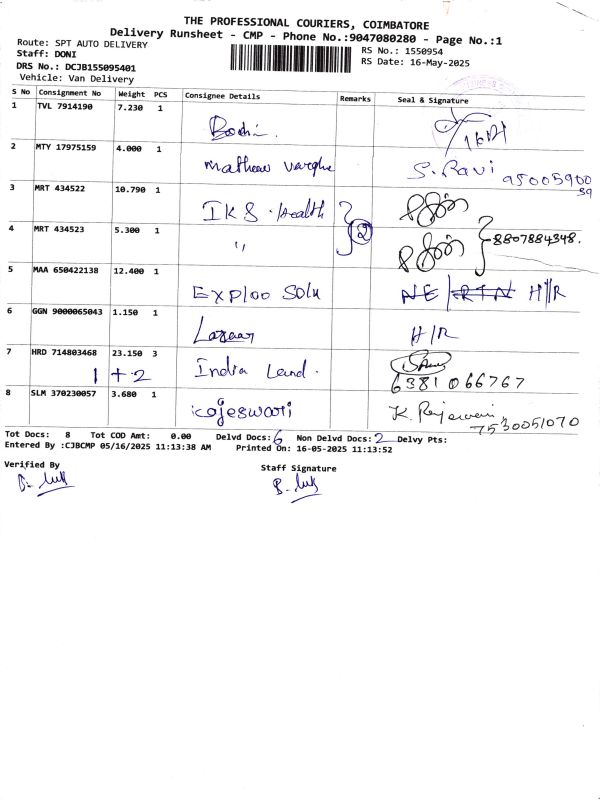 THE PROFESSIONAL COURIERS, COIMBATORE
Delivery Runsheet - CMP - Phone No.:9047080280 - Page No.:1
Route: SPT AUTO DELIVERY
RS No.: 1550954
Staff: DONI
RS Date: 16-May-2025
DRS No.: DCJB155095401
Vehicle: Van Delivery
S No Consignment No Weight PCS Consignee Details Remarks Seal & Signature
1 TVL 7914190 7.230 1
2 MTY 17975159 4.000 1 Mathew Varghe S. Ravi 95005900
59
3 MRT 434522 10.790 1 IKS Health
4 MRT 434523 5.300 1 " 2 8807884348.
5 MAA 650422138 12.400 1 Exploo Solu H/R
6 GGN 9000065043 1.150 1 Lazaar H/R
7 HRD 714803468 23.150 3 India Land.
1 + 2 6381066767
8 SLM 370230057 3.680 1 rajeswari K. Rajeswari
7530051070
Tot Docs: 8 Tot COD Amt: 0.00 Delvd Docs: 6 Non Delvd Docs: 2 Delvy Pts:
Entered By :CJBCMP 05/16/2025 11:13:38 AM Printed On: 16-05-2025 11:13:52
Verified By Staff Signature